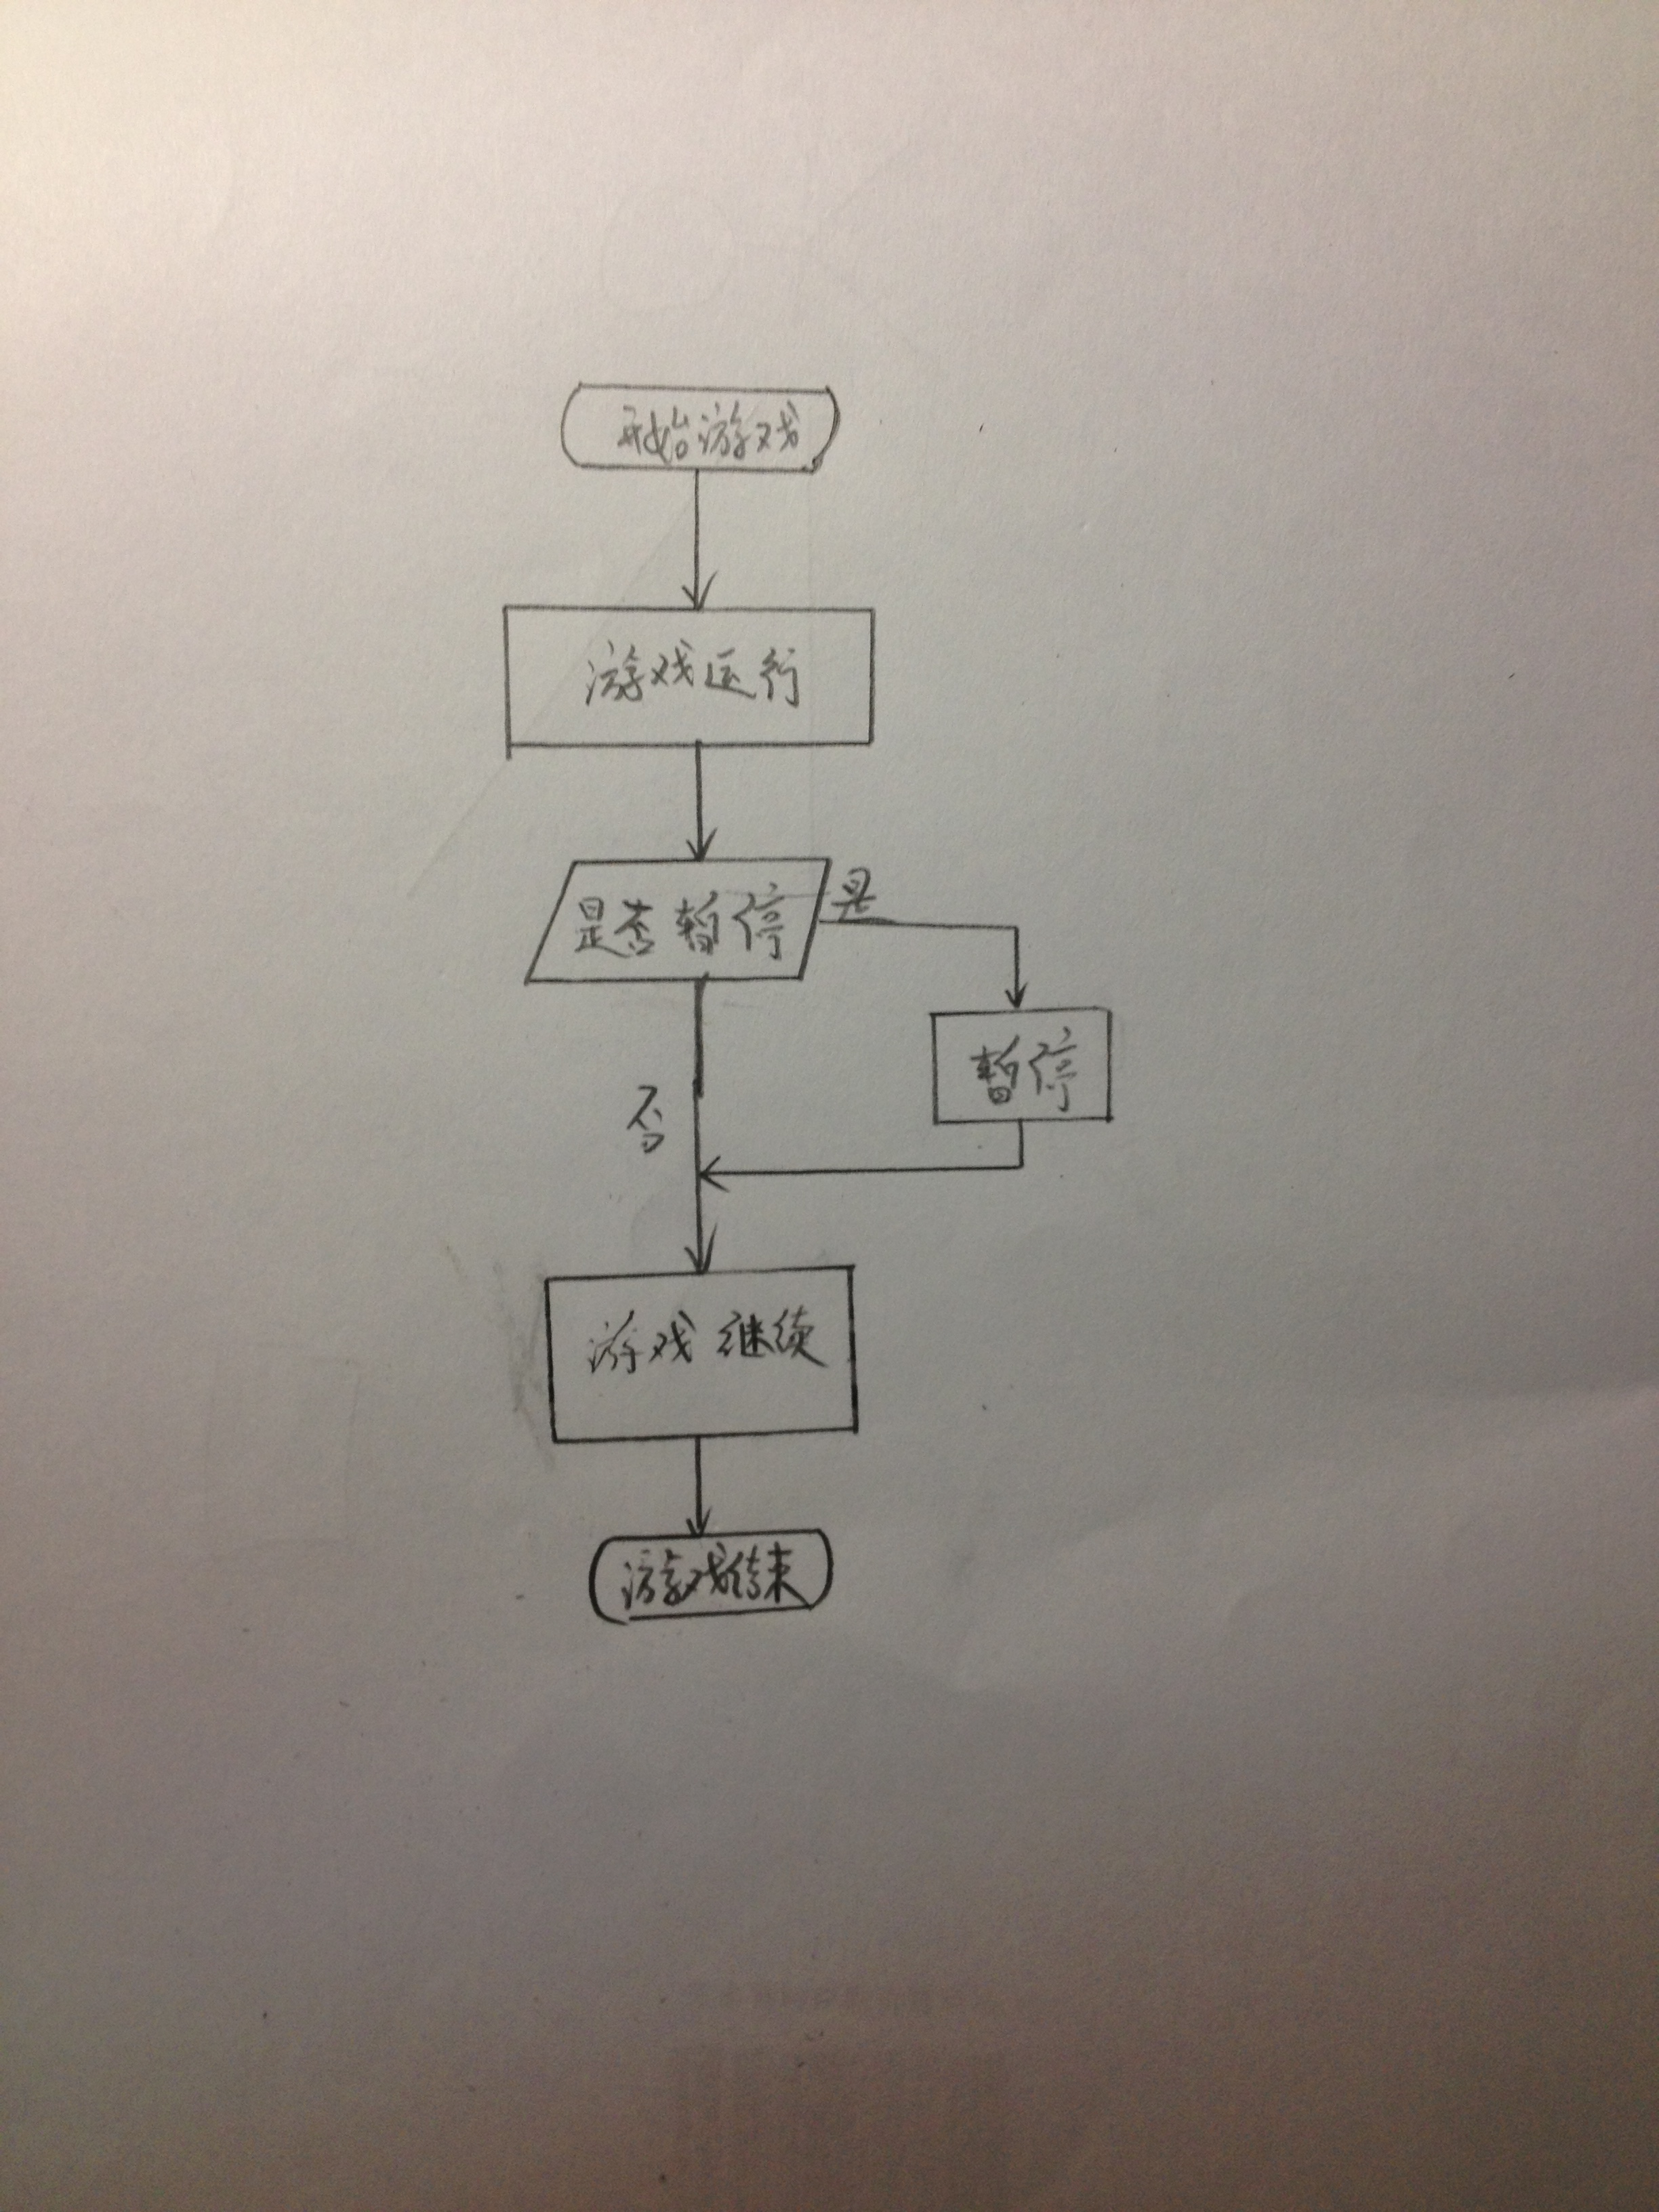 开始游戏
游戏运行
是否暂停
是
暂停
否
游戏继续
游戏结束